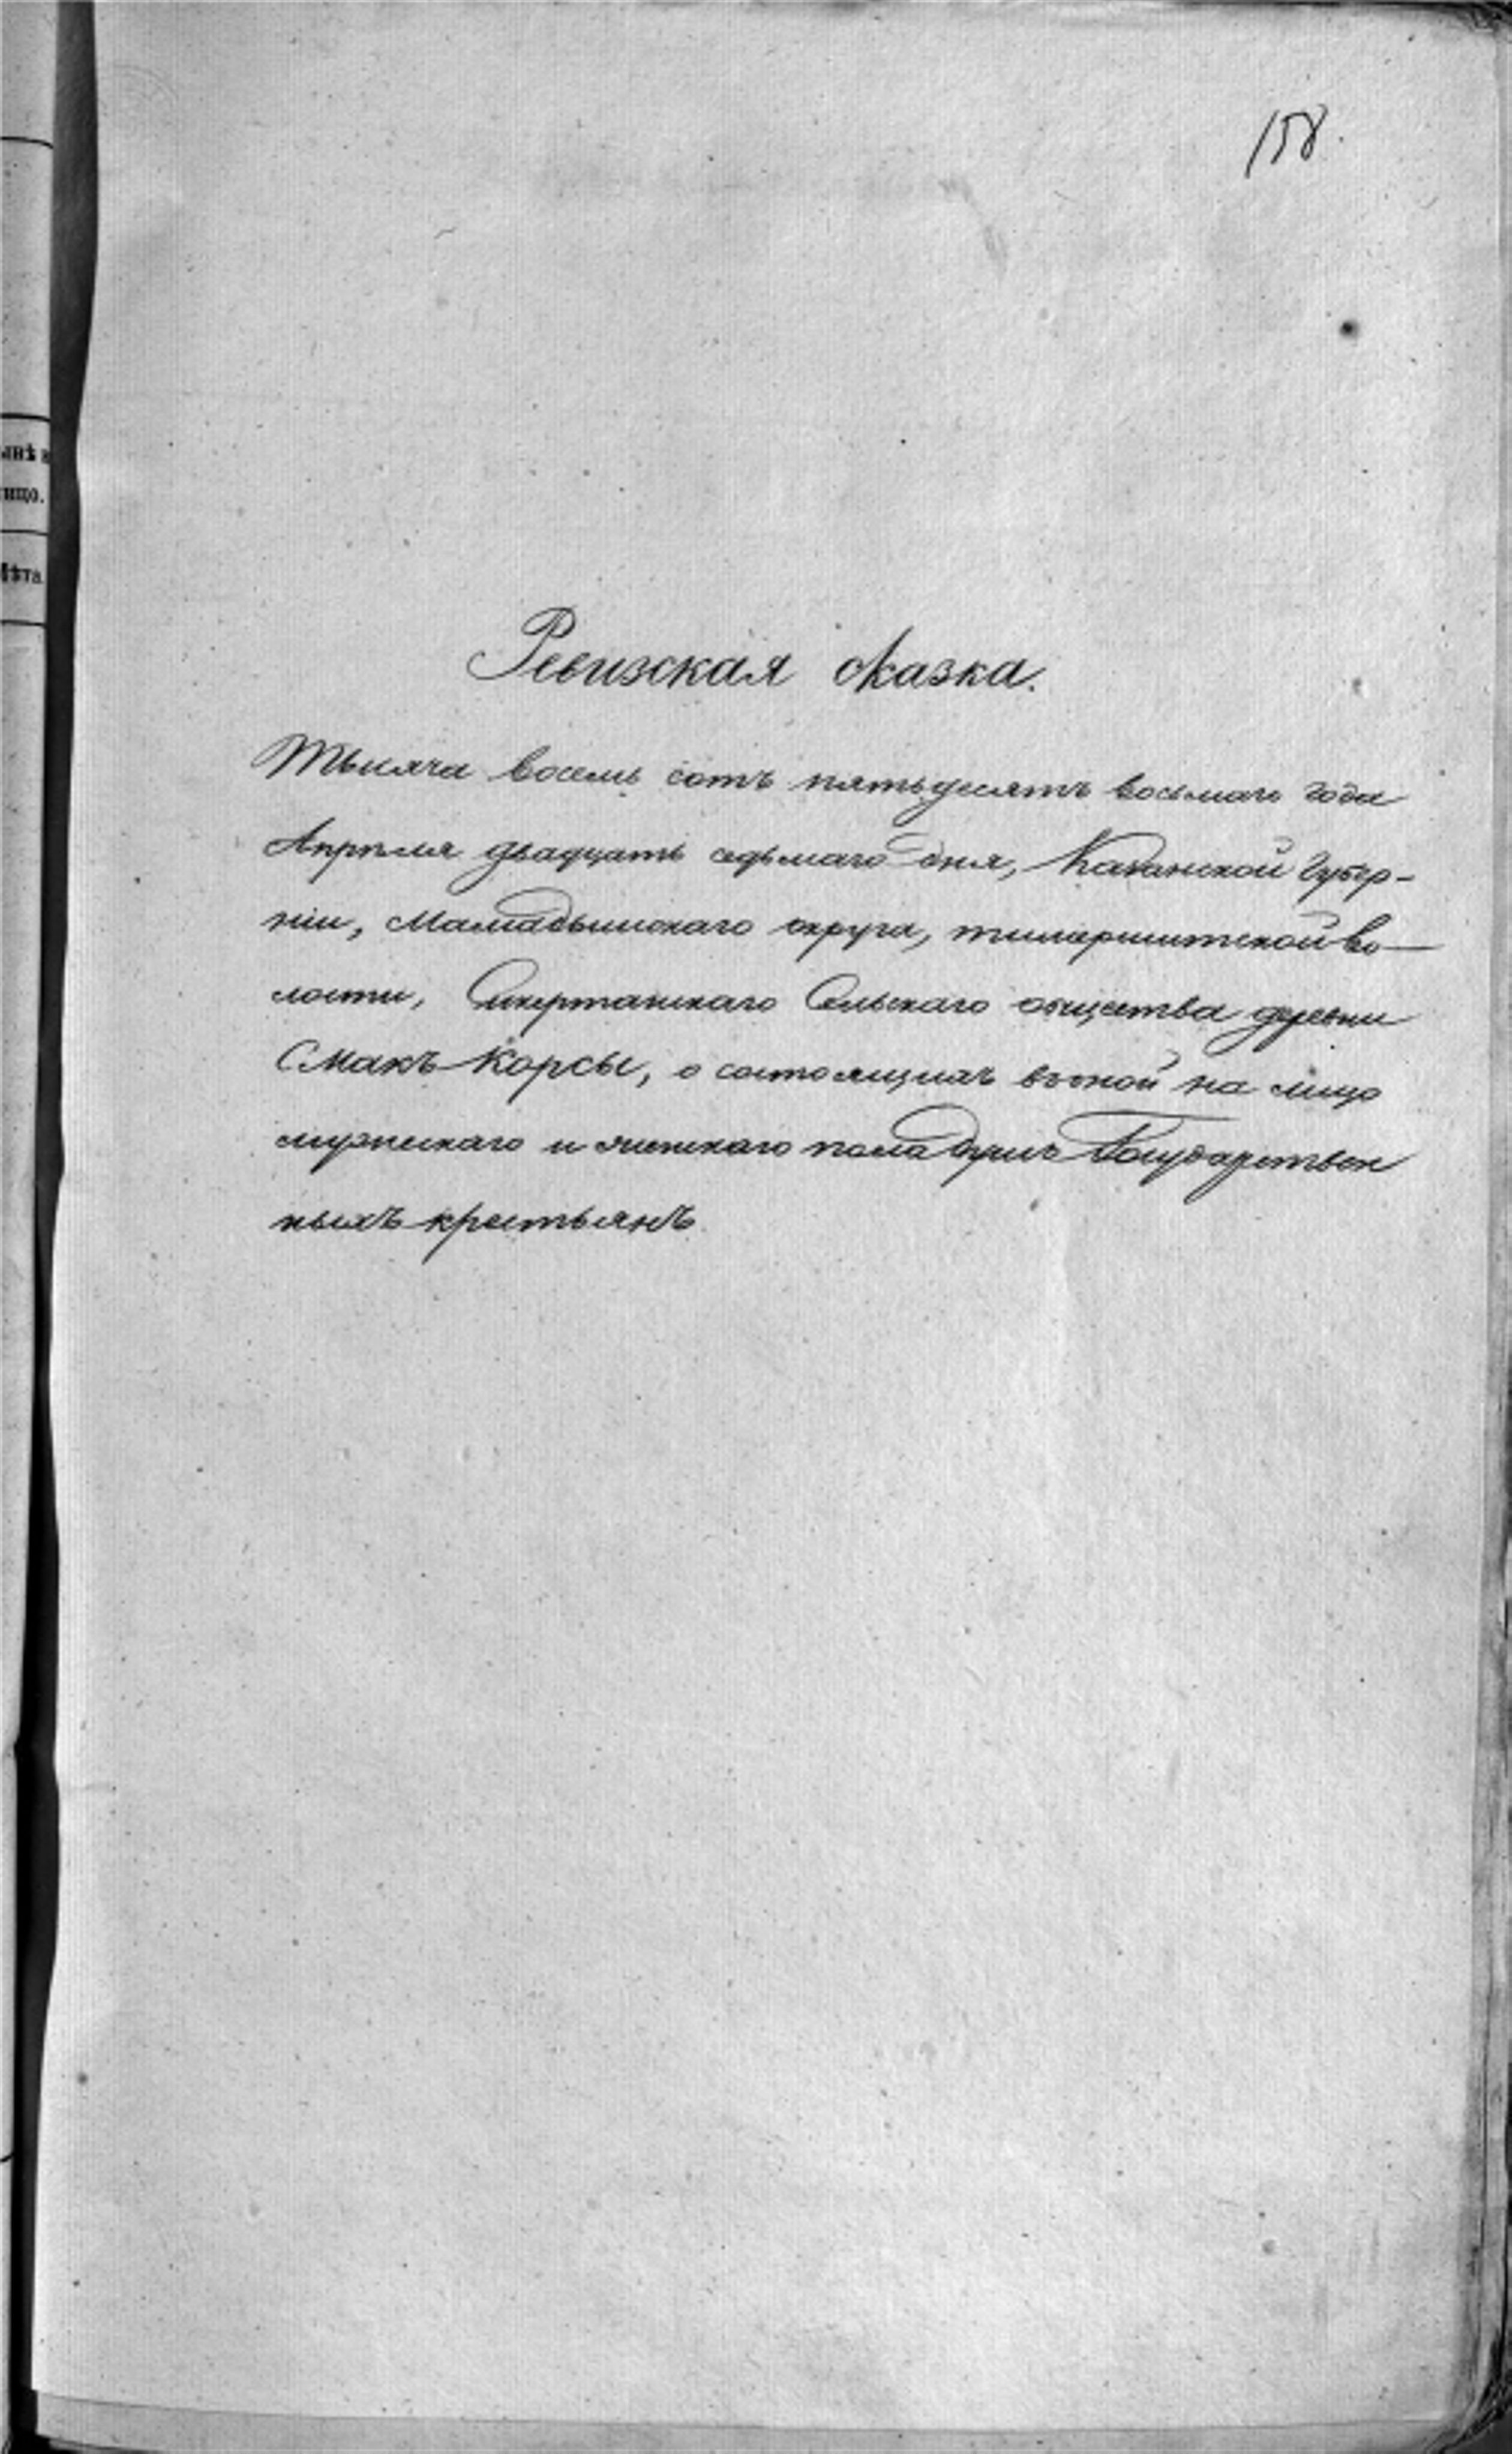 158.
ынѣ н
лицо.
Лѣта.
Ревизская сказка.
Тысяча восемь сотъ пятьдесятъ восьмаго года
Апрѣля двадцать седьмаго дня, Казанской губер-
ніи, Мамадышскаго округа, во-
лости, Сельскаго общества деревни
Смакъ-Корсы, о состоящихъ въ оной на лицо
мужескаго и женскаго пола душъ Государствен
ныхъ крестьянъ